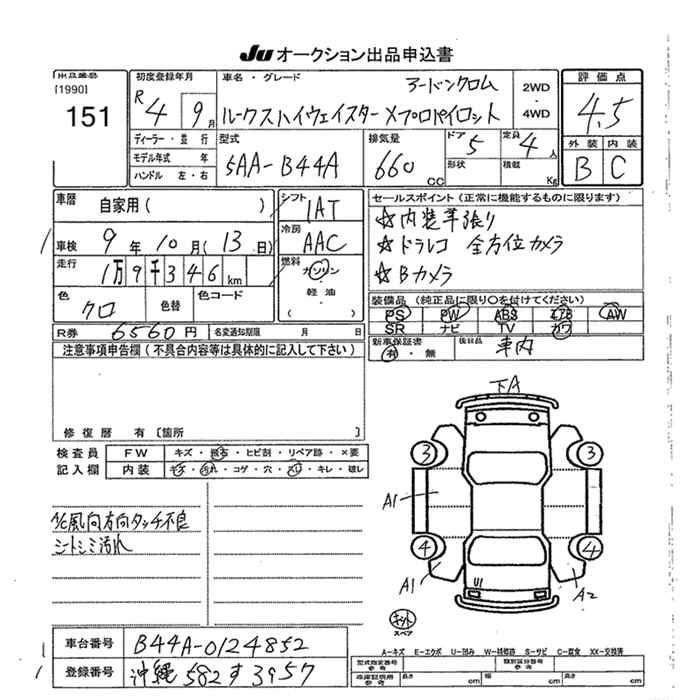 Ju オークション出品申込書
出品番号
[1990]
151
初度登録年月
R 4年 9月
車名・グレード
アーバンクロム
ルークスハイウェイスター Xプロパイロット
2WD
・
4WD
評価点
4.5
外装 内装
B C
ディーラー・並行
モデル年式 年
ハンドル 左・右
型式
5AA-B44A
排気量
660 CC
ドア 5
形状
定員 4人
積載 Kg
車歴
自家用( )
シフト
IAT
車検 9年 10月(13日)
冷房
AAC
走行 1万9千346km
燃料
ガソリン
・
軽油
( )
色
クロ
色替
色コード
R券 6560円 名変通知期限 月 日
セールスポイント(正常に機能するものに限ります)
☆内装革張り
☆ドラレコ 全方位カメラ
☆Bカメラ
装備品(純正品に限り○を付けてください)
PS PW ABS エアB AW
SR ナビ TV カワ
新車保証書
有・無
後日品
車内
注意事項申告欄(不具合内容等は具体的に記入して下さい)
修復歴 有[箇所
検査員
記入欄
FW キズ・飛石・ヒビ割・リペア跡・×要
内装 キズ・汚れ・コゲ・穴・スレ・キレ・破レ
A/C風向方向タッチ不良
シートシミ汚れ
下A
3 3
A1
4 4
A1
U1
A2
キット
スペア
A-キズ E-エクボ U-凹み W-補修跡 S-サビ C-腐食 XX-交換済
車台番号 B44A-0124852
登録番号 沖縄 582 す 3957
型式指定番号
参考
類別区分番号
参考
車庫証明用
参考
長さ cm 幅 cm 高さ cm